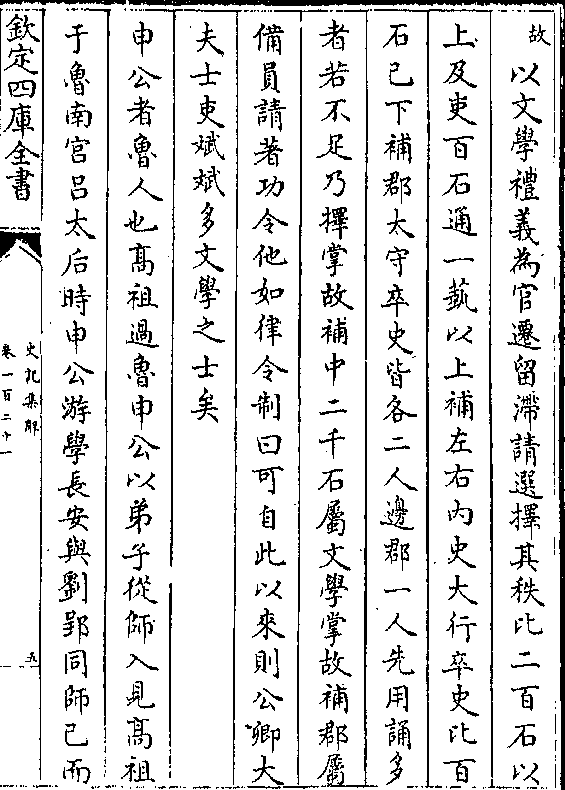 故
以文學禮義為官遷留滯請選擇其秩比二百石以
上及吏百石通一蓺以上補左右內史大行卒史比百
石已下補郡太守卒史皆各二人邊郡一人先用誦多
者若不足乃擇掌故補中二千石屬文學掌故補郡屬
備員請著功令他如律令制曰可自此以來則公卿大
夫士吏斌斌多文學之士矣
申公者魯人也髙祖過魯申公以弟子從師入見髙祖
于魯南宮吕太后時申公游學長安與劉郢同師已而
欽定四庫全書
史記集解
卷一百二十一
五